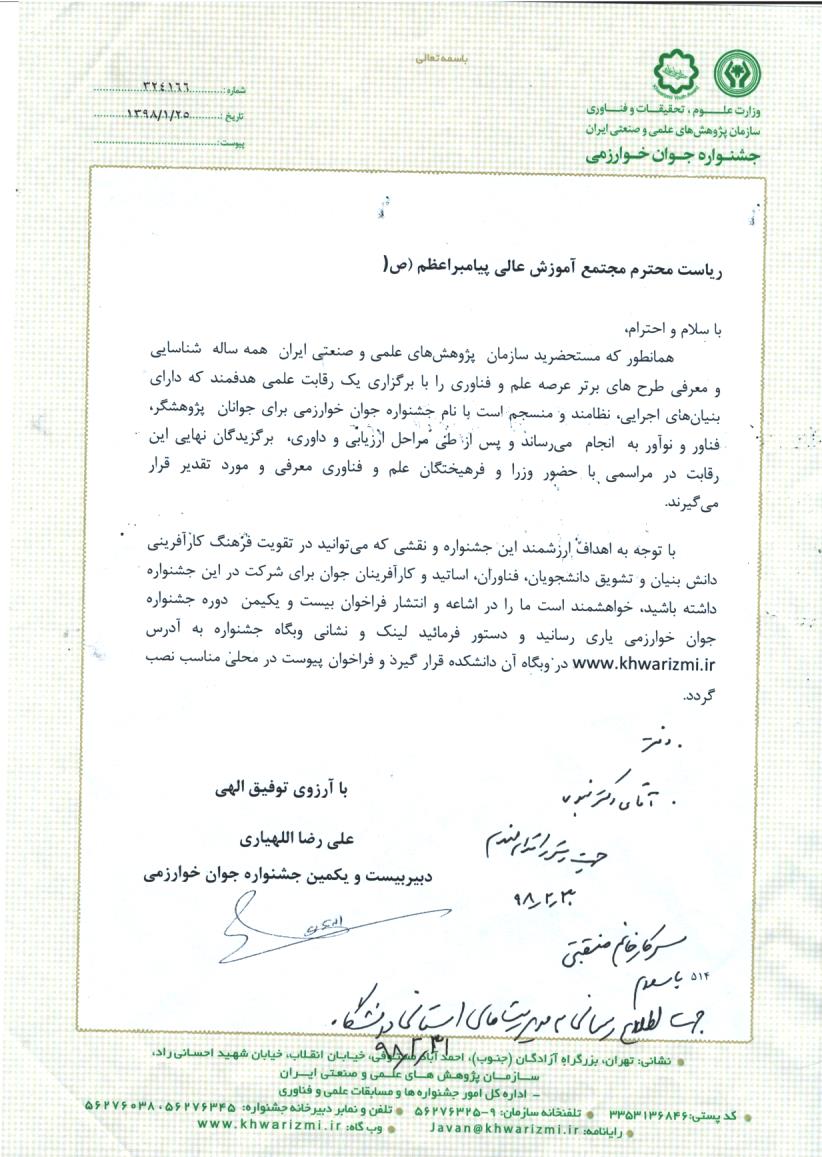 باسمه تعالی
وزارت علـــوم، تحقیقـات و فنـــاوری
سازمان پژوهش‌های علمی و صنعتی ایران
جشنـواره جـوان خـوارزمـی
شماره: ۳۲۴۱۶۶
تاریخ: ۱۳۹۸/۱/۲۵
پیوست:
ریاست محترم مجتمع آموزش عالی پیامبراعظم (ص(
با سلام و احترام،
همانطور که مستحضرید سازمان پژوهش‌های علمی و صنعتی ایران همه ساله شناسایی
و معرفی طرح های برتر عرصه علم و فناوری را با برگزاری یک رقابت علمی هدفمند که دارای
بنیان‌های اجرایی، نظامند و منسجم است با نام جشنواره جوان خوارزمی برای جوانان پژوهشگر،
فناور و نوآور به انجام می‌رساند و پس از طی مراحل ارزیابی و داوری، برگزیدگان نهایی این
رقابت در مراسمی با حضور وزرا و فرهیختگان علم و فناوری معرفی و مورد تقدیر قرار
می‌گیرند.
با توجه به اهداف ارزشمند این جشنواره و نقشی که می‌توانید در تقویت فرهنگ کارآفرینی
دانش بنیان و تشویق دانشجویان، فناوران، اساتید و کارآفرینان جوان برای شرکت در این جشنواره
داشته باشید، خواهشمند است ما را در اشاعه و انتشار فراخوان بیست و یکیمن دوره جشنواره
جوان خوارزمی یاری رسانید و دستور فرمائید لینک و نشانی وبگاه جشنواره به آدرس
www.khwarizmi.ir در وبگاه آن دانشکده قرار گیرد و فراخوان پیوست در محلی مناسب نصب
گردد.
با آرزوی توفیق الهی
علی رضا اللهیاری
دبیربیست و یکمین جشنواره جوان خوارزمی
آقای دکتر
۹۸/۲/۳۰
سرکار خانم منقبتی
۵۱۴ با سلام
جهت اطلاع رسانی به مدیریت های استانی دانشگاه.
۹۸/۲/۳۱
نشانی: تهران، بزرگراه آزادگان (جنوب)، احمد آباد مستوفی، خیابان انقلاب، خیابان شهید احسانی راد،
سـازمـان پژوهش هـای علمـی و صنعتی ایـران
– اداره کل امور جشنواره ها و مسابقات علمی و فناوری
کد پستی: ۳۳۵۳۱۳۶۸۴۶ تلفنخانه سازمان: ۹-۵۶۲۷۶۳۲۵ تلفن و نمابر دبیرخانه جشنواره: ۵۶۲۷۶۳۴۵ ، ۵۶۲۷۶۰۳۸
رایانامه: Javan@khwarizmi.ir وب گاه: www.khwarizmi.ir